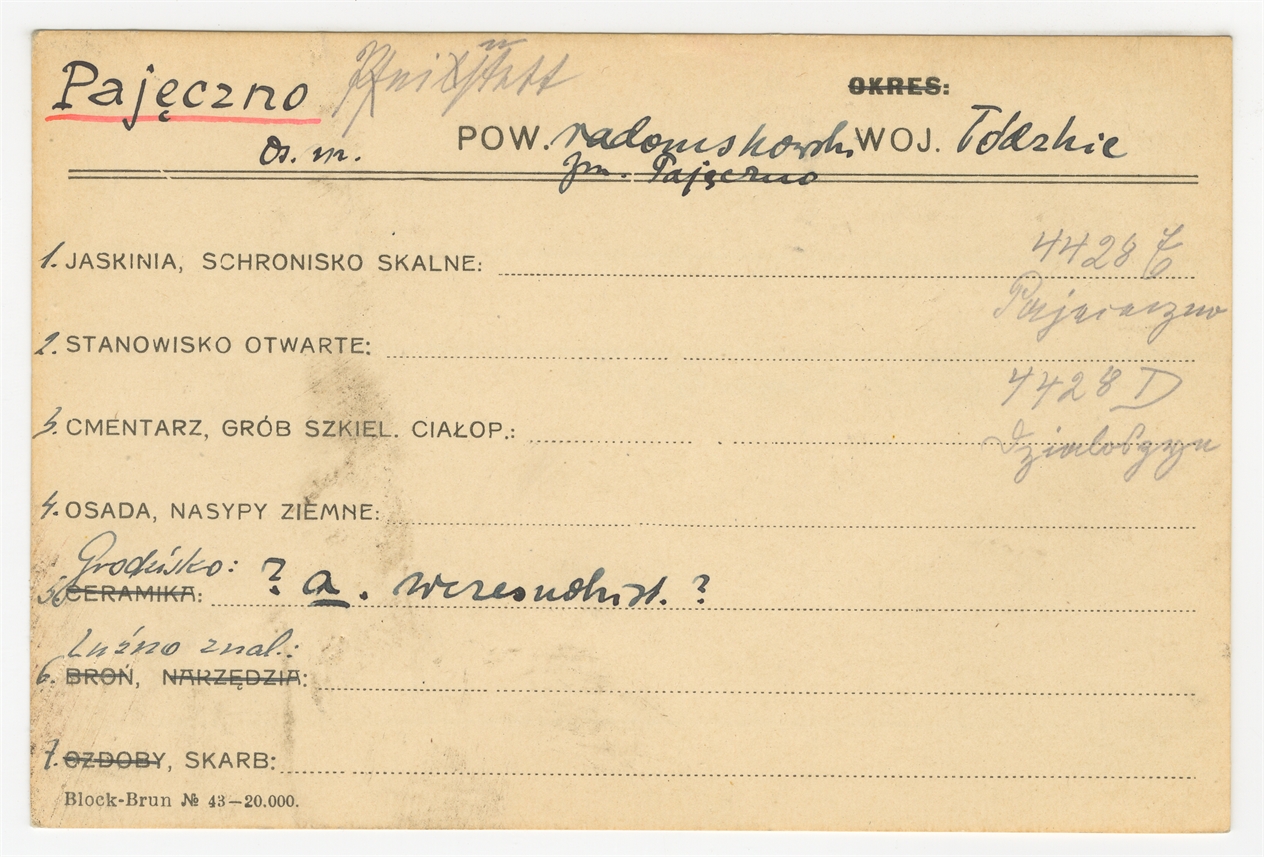 Pajęczno
OKRES:
Os. m. POW. radomskowski WOJ. Łódzkie
gm. Pajęczno
4428 E
1. JASKINIA, SCHRONISKO SKALNE:
Pajęczno
2. STANOWISKO OTWARTE:
4428 D
3. CMENTARZ, GRÓB SZKIEL. CIAŁOP.:
Działoszyn
4. OSADA, NASYPY ZIEMNE:
Grodzisko: ? a. wczesnohist. ?
5. CERAMIKA:
Luźno znal.:
6. BROŃ, NARZĘDZIA:
7. OZDOBY, SKARB:
Block-Brun № 43—20.000.